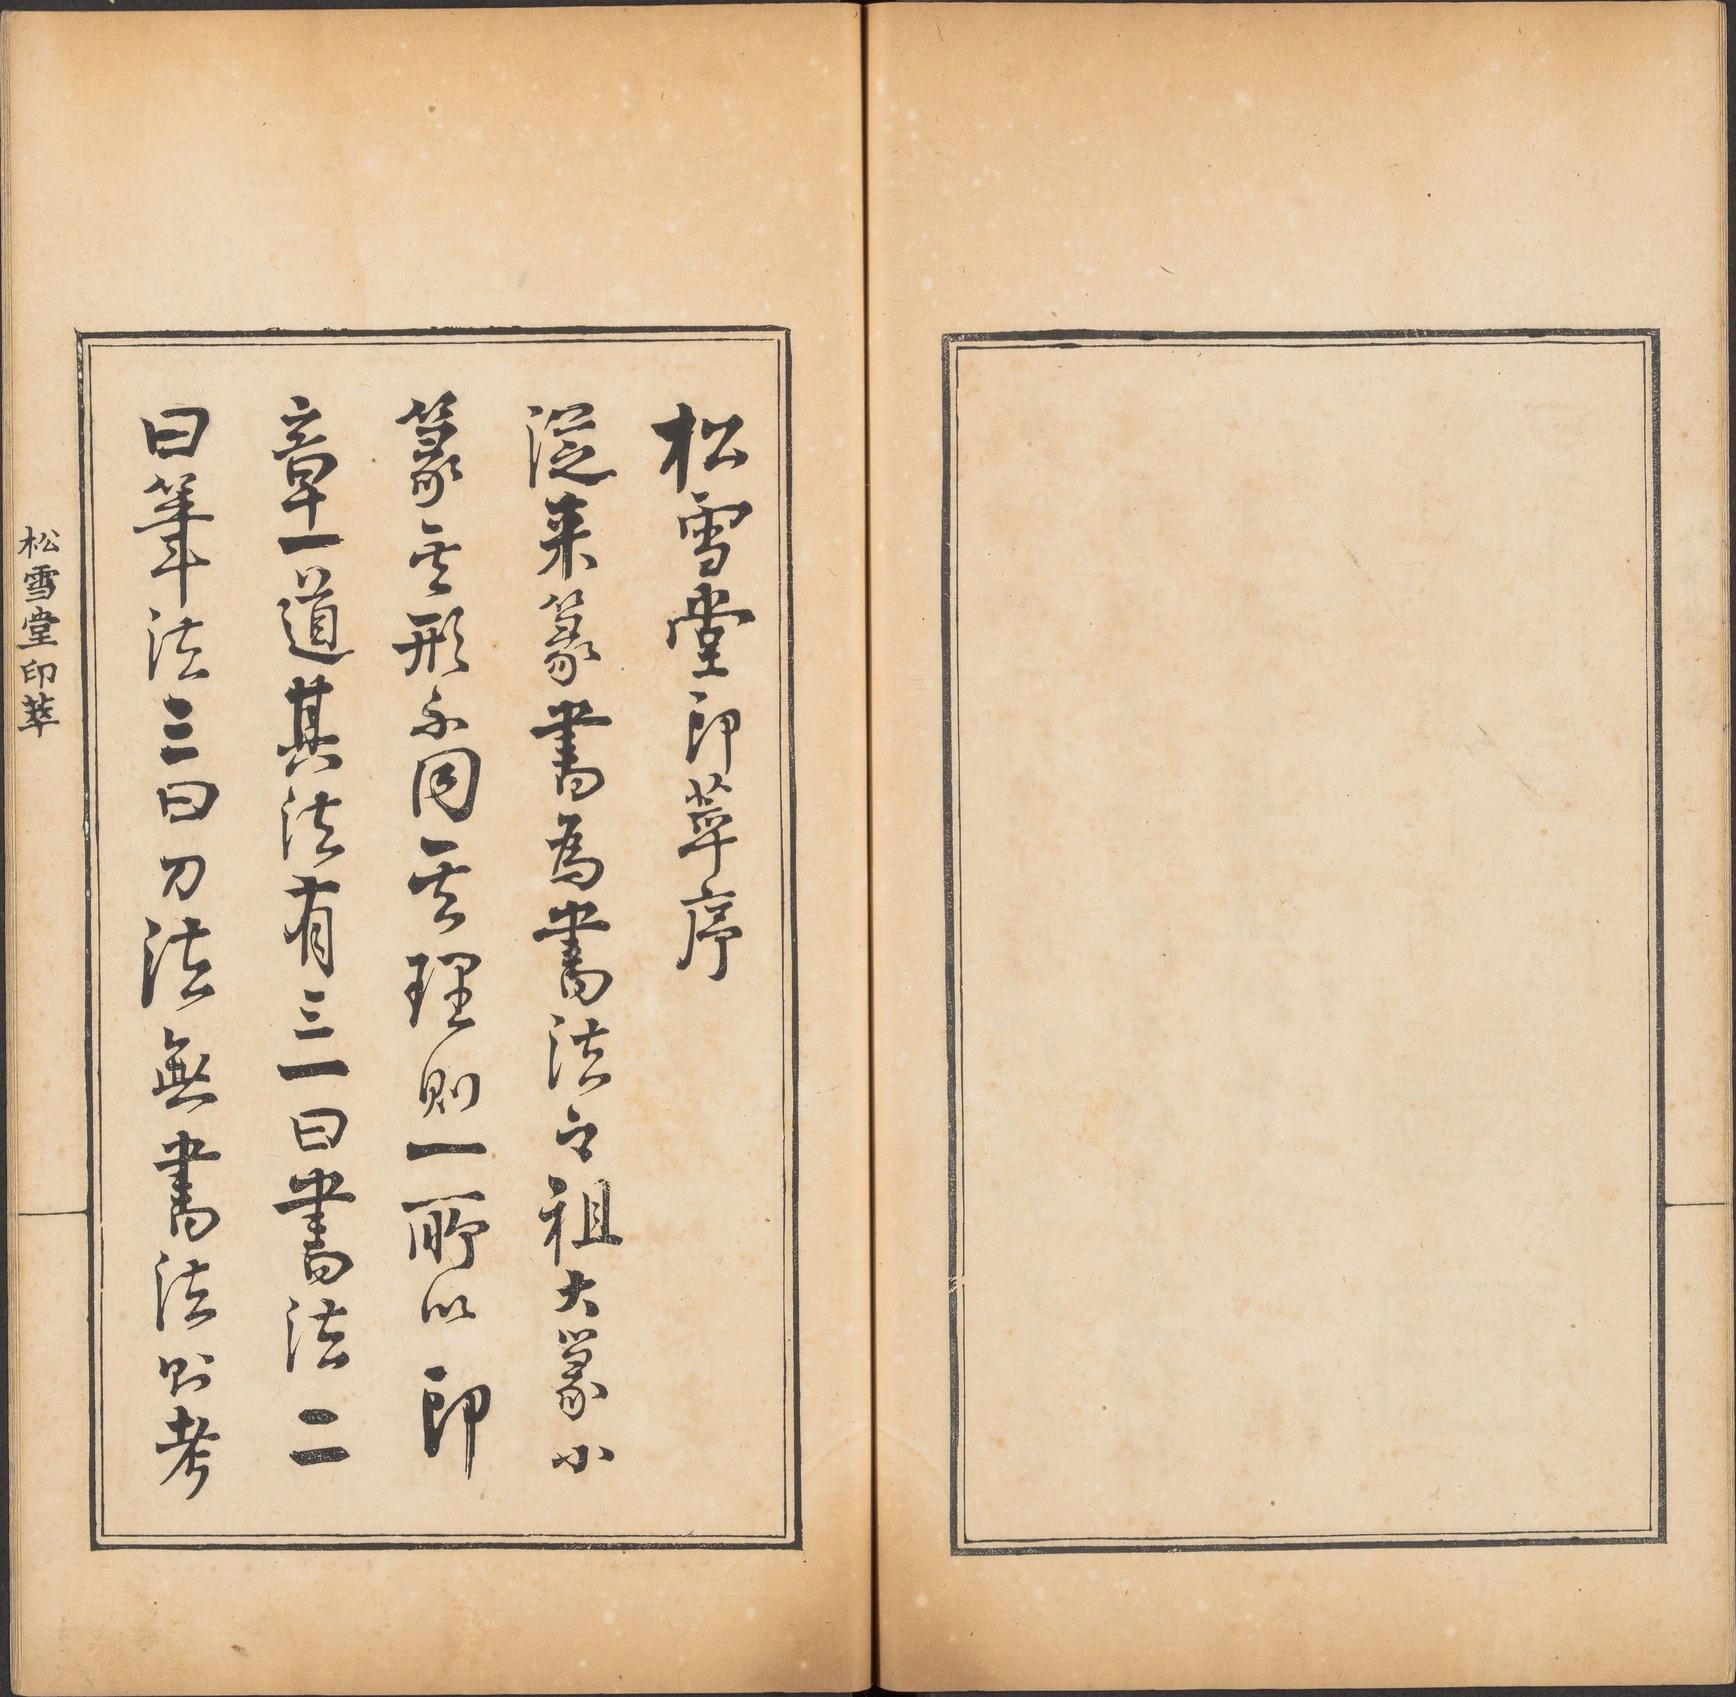 松雪堂印萃序
從来篆書為書法之祖大篆小
篆其形不同其理則一所以印
章一道其法有三一曰書法二
曰筆法三曰刀法無書法則考
松雪堂印萃